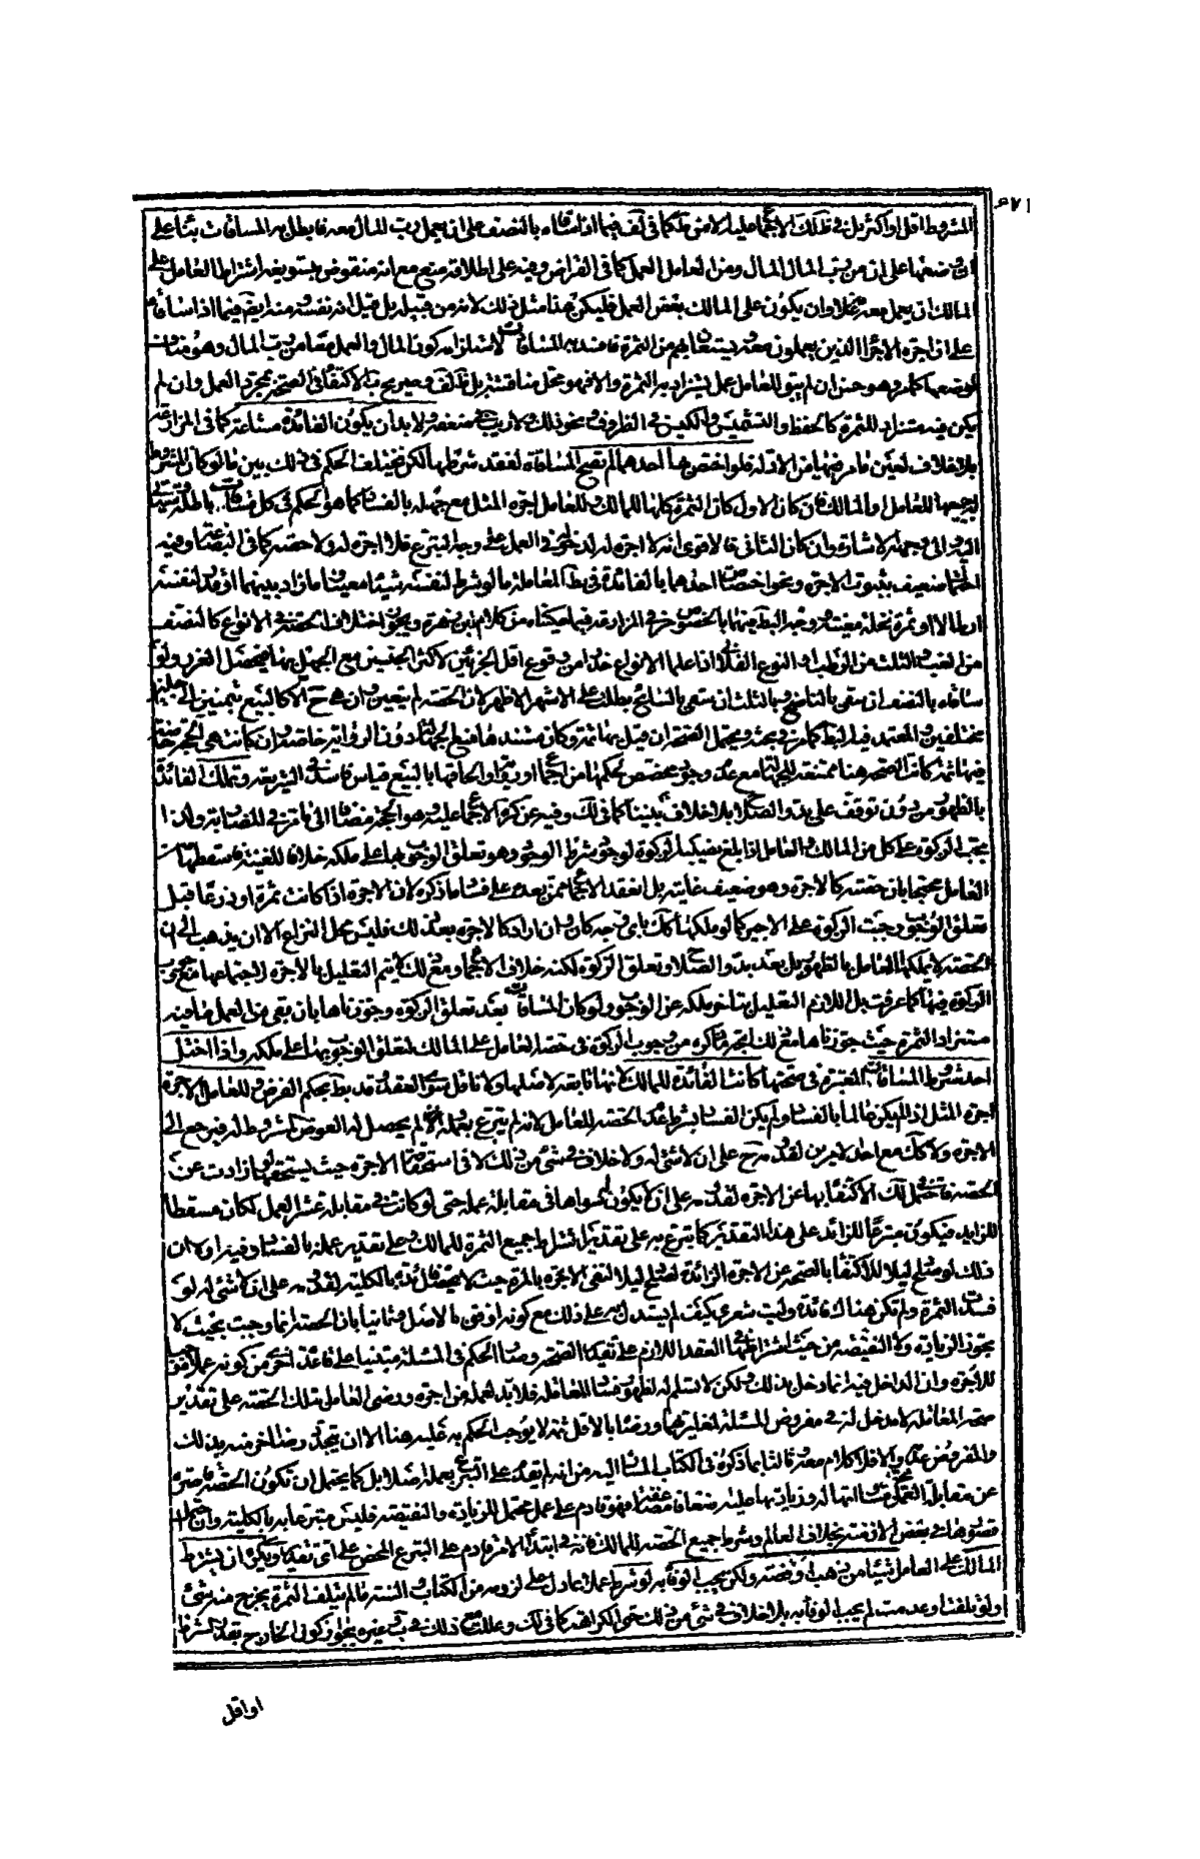 المشروط اقل او اكثر بل في ذلك الاجماع عليه الا من كما في لف فيما اذا ساقاه بالنصف على ان يعمل رب المال معه فابطل به المساقات بناء على
ان وضعها على ان من رب المال المال ومن العامل العمل كما في القراض وفيه على اطلاقه منع مع انه منقوض بتسويغه اشتراط العامل على
المالك ان يعمل معه غلامه وان يكون على المالك بعض العمل فليكن هنا مثل ذلك لانه من قبيله بل قيل انه نفسه منه ايض فيما اذا ساقاه
على ان اجرة الاجراء الذين يعملون معه ويستعان بهم من الثمرة فافسد به المساقات لاستلزامه كون المال والعمل معا من رب المال وهو مناف
لوضعها كما مر وهو حسن ان لم يبق للعامل عمل يستزاد به الثمرة والا فهو محل مناقشة بل في لف وصريح ب الاكتفاء في الصحة بمجرد العمل وان لم
يكن فيه مستزاد للثمرة كالحفظ والتشميس والكبس في الظروف ونحو ذلك ولا ريب في ضعفه ولا بد ان يكون الفائدة مشاعة كما في المزارعة
بلا خلاف لعين ما مر فيها من الادلة فلو اختص بها احدهما لم يصح المساقاة لفقد شرطها لكن يختلف الحكم في ذلك بين ما لو كان المشروط
له جميعها للعامل او المالك فان كان الاول كان الثمرة كلها للمالك وللعامل اجرة المثل مع جهله بالفساد كما هو الحكم في كل مساقات باطلة
اليه والى وجهه الاشارة وان كان الثاني فالاقوى انه لا اجرة له لدخوله في العمل على وجه التبرع فلا اجرة له ولا حصة كما في البضاعة وفيه
احتمال ضعيف بثبوت الاجرة ونحو اختصاص احدهما بالفائدة في بط المعاملة ما لو شرط لنفسه شيئا معينا وما زاد بينهما او قدر لنفسه
ارطالا او ثمرة نخلة معينة وجه البط فيها بالخصوص في المزارعة فيما حكيناه من كلام ابن زهرة ويجوز اختلاف الحصة في الانواع كالنصف
من العنب والثلث من الرطب او النوع الفلاني اذا علما الانواع حذرا من وقوع اقل الجزئين لاكثر الجنسين مع الجهل بهما فيحصل الغرر ولو
ساقاه بالنصف ان سقى بالناضح وبالثلث ان سقى بالسائح بطلت على الاشهر الاظهر لان الحصة لم يتعين وان هي ح الا كالبيع بثمنين الى
مختلفين والمعتمد فيه البط كما مر في بحثه ويحتمل الصحة ان قيل بها ثمة وكان مستند المنع الجهالة دون الرواية خاصة وان كانت هي الحجة خاصة
فيها ثمة كانت الصحة هنا ممتنعة للجهالة مع عدم وجود مخصص لحكمها من اجماع او رواية والحاقها بالبيع قياس فاسد في الشريعة وتملك الفائدة
بالظهور من دون توقف على بدو الصلاح بلا خلاف بيننا كما في لك وفيه عن كره الاجماع عليه وهو الحجة مضافا الى ما مر في المضاربة ولذا
يجب الزكوة على كل من المالك والعامل اذا بلغ نصيبه الزكوة لوجود شرط الوجوب وهو تعلق الوجوب بها على ملكه خلافا للغنية فاسقطها
العامل محتجا بان حصته كالاجرة وهو ضعيف غايته بل انعقد الاجماع ممن بعده على فساد ما ذكره لان الاجرة اذا كانت ثمرة او زرعا قبل
تعلق الوجوب وجبت الزكوة على الاجير كما لو ملكها كك باي وجه كان وان اراد كالاجرة بعد ذلك فليس محل النزاع الا ان يذهب الى ان
الحصة لا يملكها العامل بالظهور بل بعد بدو الصلاح وتعلق الزكوة لكنه خلاف الاجماع ومع ذلك لا يتم التعليل بالاجرة لاجتماعها مع وجوب
الزكوة فيها كما عرفت بل اللازم التعليل بتاخر ملكه عن الوجوب ولو كان المساقات بعد تعلق الزكوة وجوزناها بان بقي من العمل ما فيه
مستزاد الثمرة حيث جوزناها مع ذلك اتجه ما ذكره من وجوب الزكوة في حصة العامل على المالك لتعلق الوجوب بها على ملكه واذا اختل
احد شروط المساقات المعتبرة في صحتها كانت الفائدة للمالك لانها تابعة لاصلها ولا ناقل سوى العقد وقد بط بحكم الفرض وللعامل الاجرة
اجرة المثل اذا لم يكن عالما بالفساد ولم يكن الفساد بشرط عدم الحصة للعامل لانه لم يتبرع بعمله ولم يحصل له العوض المشروط له فيرجع الى
الاجرة ولا كك مع احد الامرين لقدومه ح على ان لا شئ له ولا خلاف في شئ من ذلك لا في استحقاقه الاجرة حيث يستحقها وان زادت عن
الحصة فاحتمل لك الاكتفاء بها عن الاجرة لقدومه على ان لا يكون له سواها في مقابلة عمله حتى لو كانت في مقابلة عشر العمل لكان مسقطا
للزايد فيكون متبرعا للزائد على هذا التقدير كما يتبرع به على تقدير اشتراط جميع الثمرة للمالك وعلى تقدير عمله بالفساد وفيه اولا ان
ذلك لو صلح ليلا للاكتفاء بالحصة عن الاجرة الزائدة لصلح ليلا لنفي الاجرة بالمرة حيث لا يحصل فائدة بالكلية لقدومه على ان لا شئ له لو
فسدت الثمرة ولم تكن هناك فائدة وليت شعري كيف لم يستدل به على ذلك مع كونه اوفق بالاصل وثانيا بان الحصة انما وجبت بحيث لا
يجوز الزيادة ولا النقيصة من حيث اشتراطها في العقد اللازم على تقدير الصحة وصار الحكم في المسئلة مبتنيا على قاعدة اخرى من كونه عملا موجبا
للاجرة وان الداخل فيه انما دخل بذلك ولكن لا تسلم له لظهور فساد المعاملة فلا بد لعمله من اجرة ورضى العامل بتلك الحصة على تقدير
صحة المعاملة لا مدخل له في مفروض المسئلة لمغايرتهما ورضاه بالاقل ثمة لا يوجب الحكم به عليه هنا الا ان يتجدد رضا اخر منه بذلك
والمفروض عدمه والا فلا كلام معه وثالثا بما ذكره في الكتاب المشار اليه من انه لم يقدم على التبرع بعمله اصلا بل كما يحتمل ان تكون الحصة قاصرة
عن مقابلة العمل يحتمل مساواتها له وزيادتها عليه اضعافا مضاعفة فهو قادم على عمل محتمل للزيادة والنقيصة فليس متبرعا به بالكلية وان احتمل
قصورها في بعض الازمنة بخلاف العالم وشرط جميع الحصة للمالك فانه في ابتداء الامر قادم على التبرع المحض على اي تقدير ويكره ان يشترط
المالك على العامل شيئا من ذهب او فضة ولكن يجب الوفاء به لو شرط عملا بما دل على لزومه من الكتاب والسنة ما لم يتلف الثمرة يخرج منه شئ
ولو تلفت او عدمت لم يجب الوفاء به بلا خلاف في شئ من ذلك حتى الكراهة كما في لك وعللت مع ذلك في ب غيره بجواز كون الخارج بقدر الشرط
او اقل